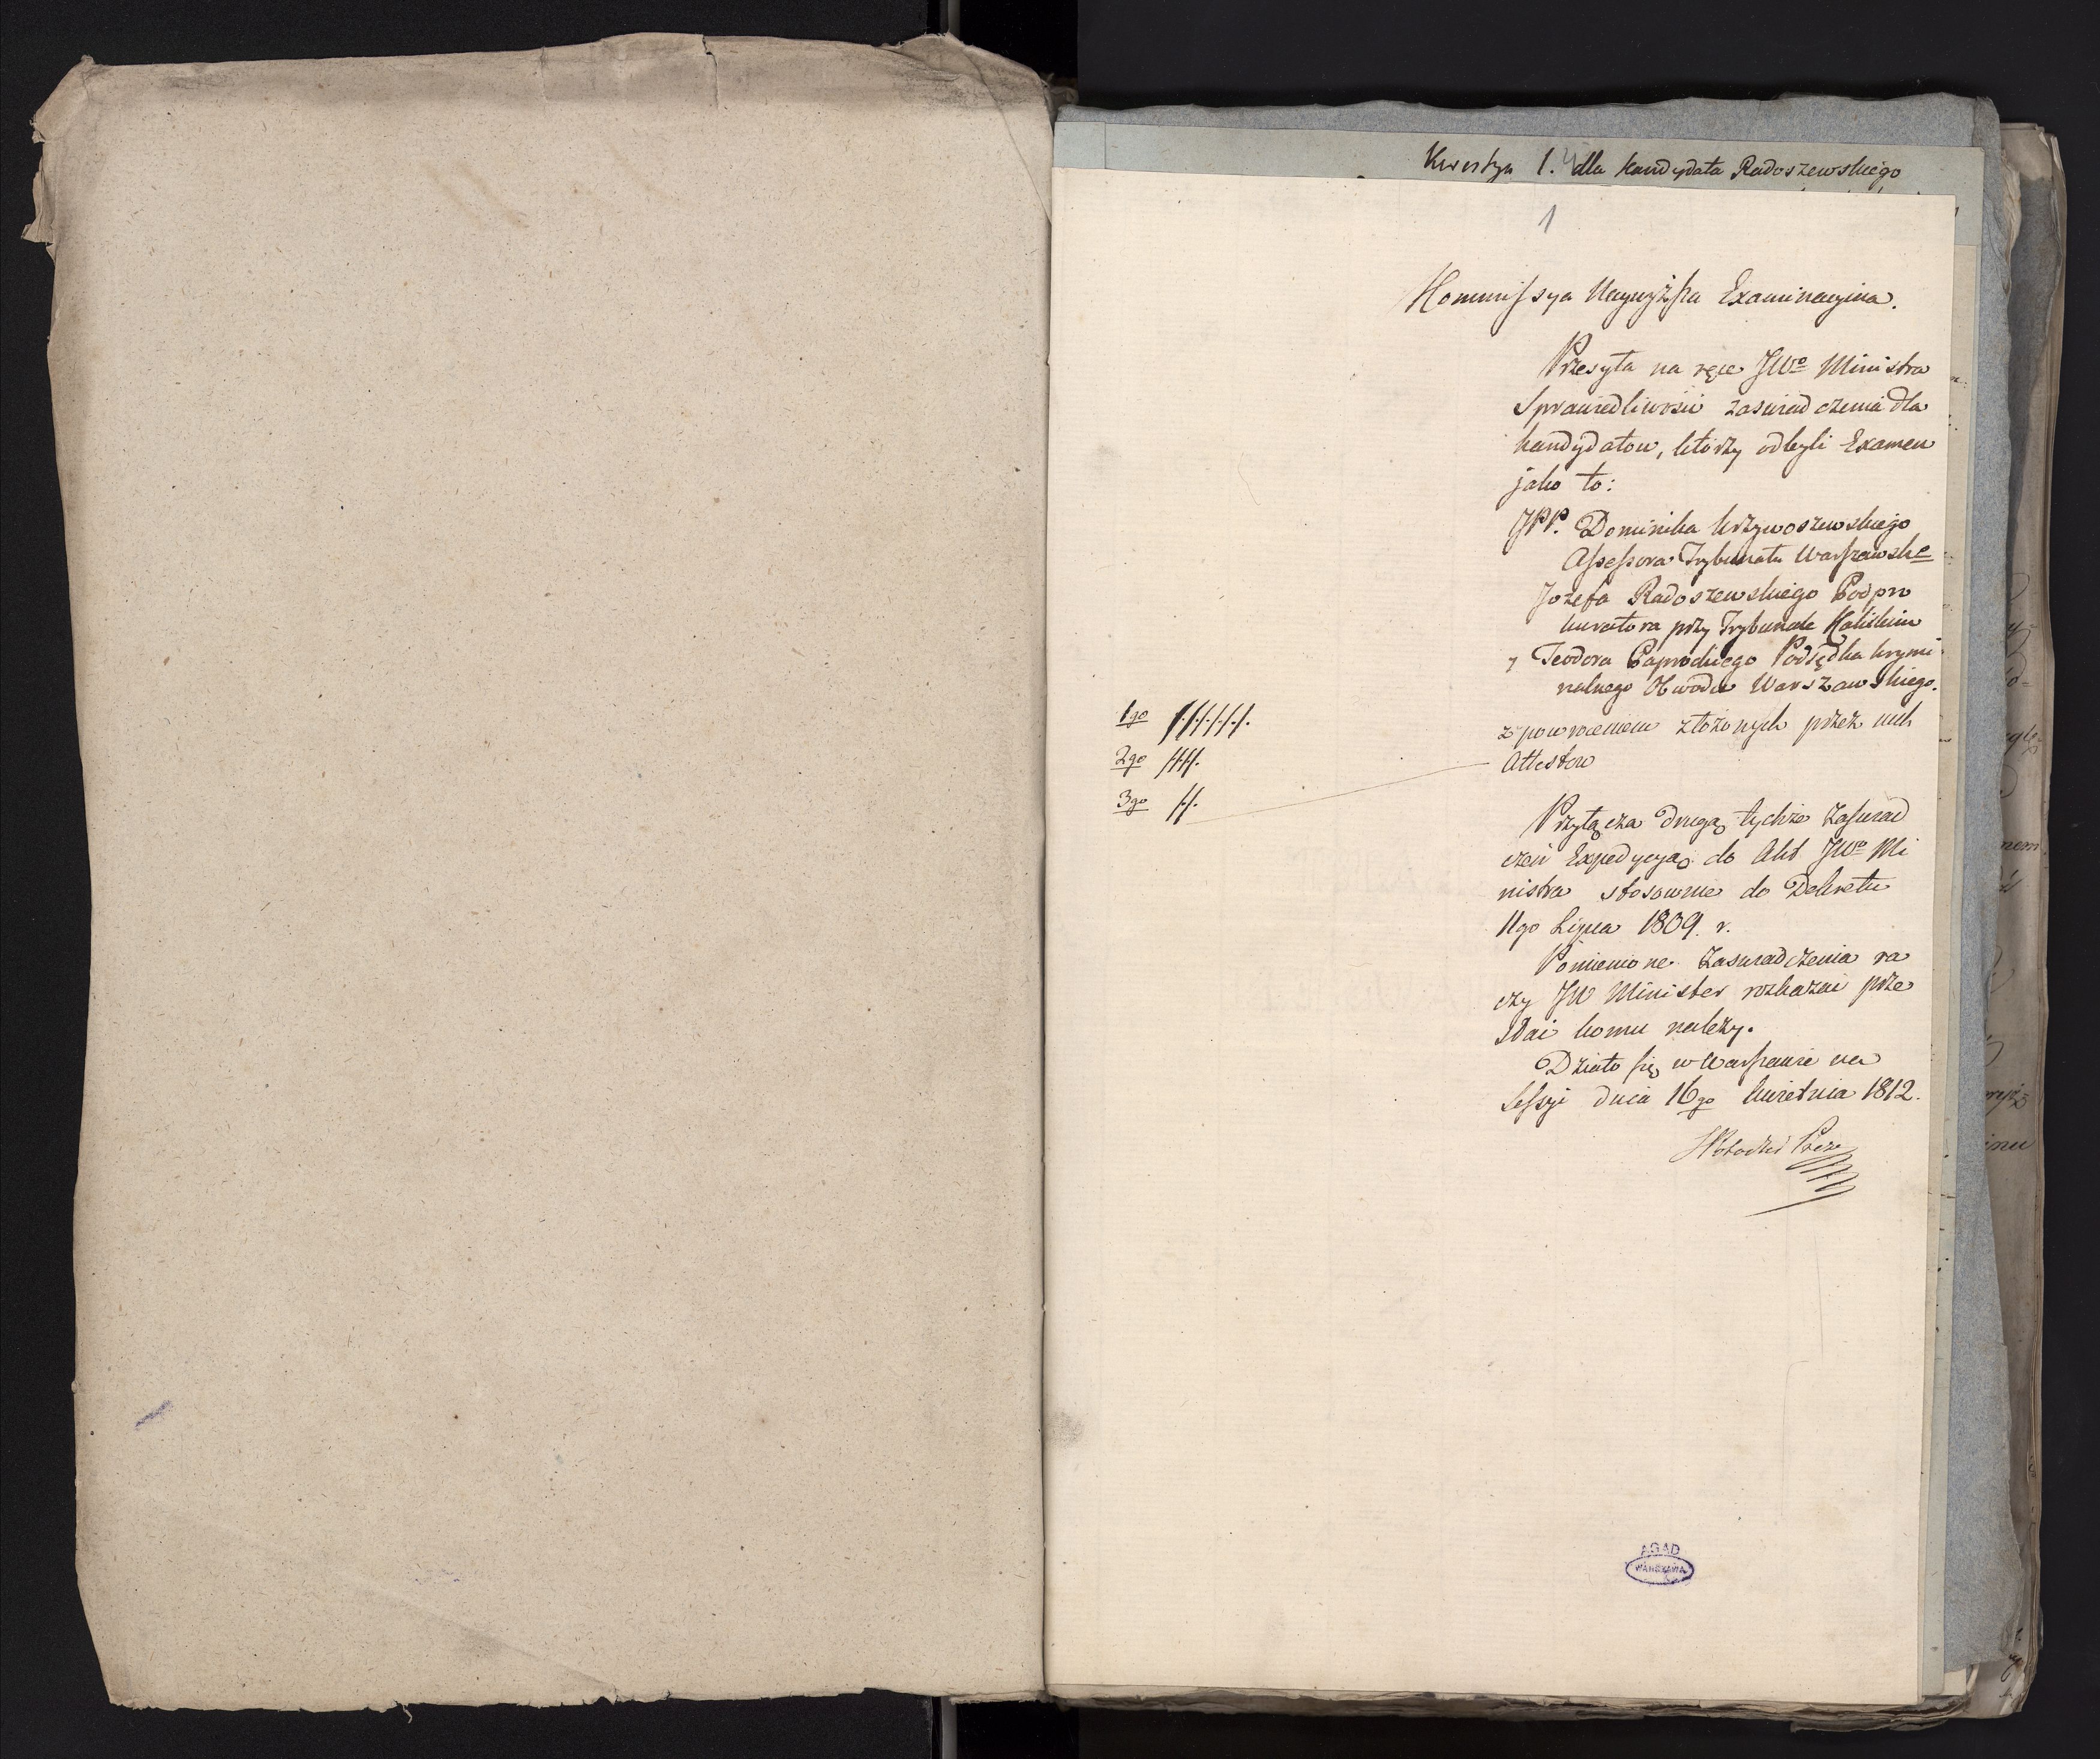 Kwestya 1. dla kandydata Radoszewskiego
1
Kommissya Naywyższa Examinacyina.
Przesyła na ręce JWo Ministra
Sprawiedliwości zaświadczenia dla
kandydatow, ktorzy odbyli Examen
jako to:
JPP. Dominika Krzywoszewskiego
Assessora Trybunału Warszawske
Jozefa Radoszewskiego Podpro
kuratora przy Trybunale Kaliskim
y Teodora Paprockiego Podsędka krymi
nalnego Obwodu Warszawskiego.
z powroceniem złożonych przez nich
Attestow
1go
2go
3go
Przyłącza drugą tychże Zaswiad
czeń Expedycyą do Akt JWo Mi
nistra stosownie do Dekretu
11go Lipca 1809. r.
Pomienione Zaswiadczenia ra
czy JW Minister rozkazać prze
słać komu należy.
Działo się w Warszawie na
Sessyi dnia 16go Kwietnia 1812.
AGAD
WARSZAWA